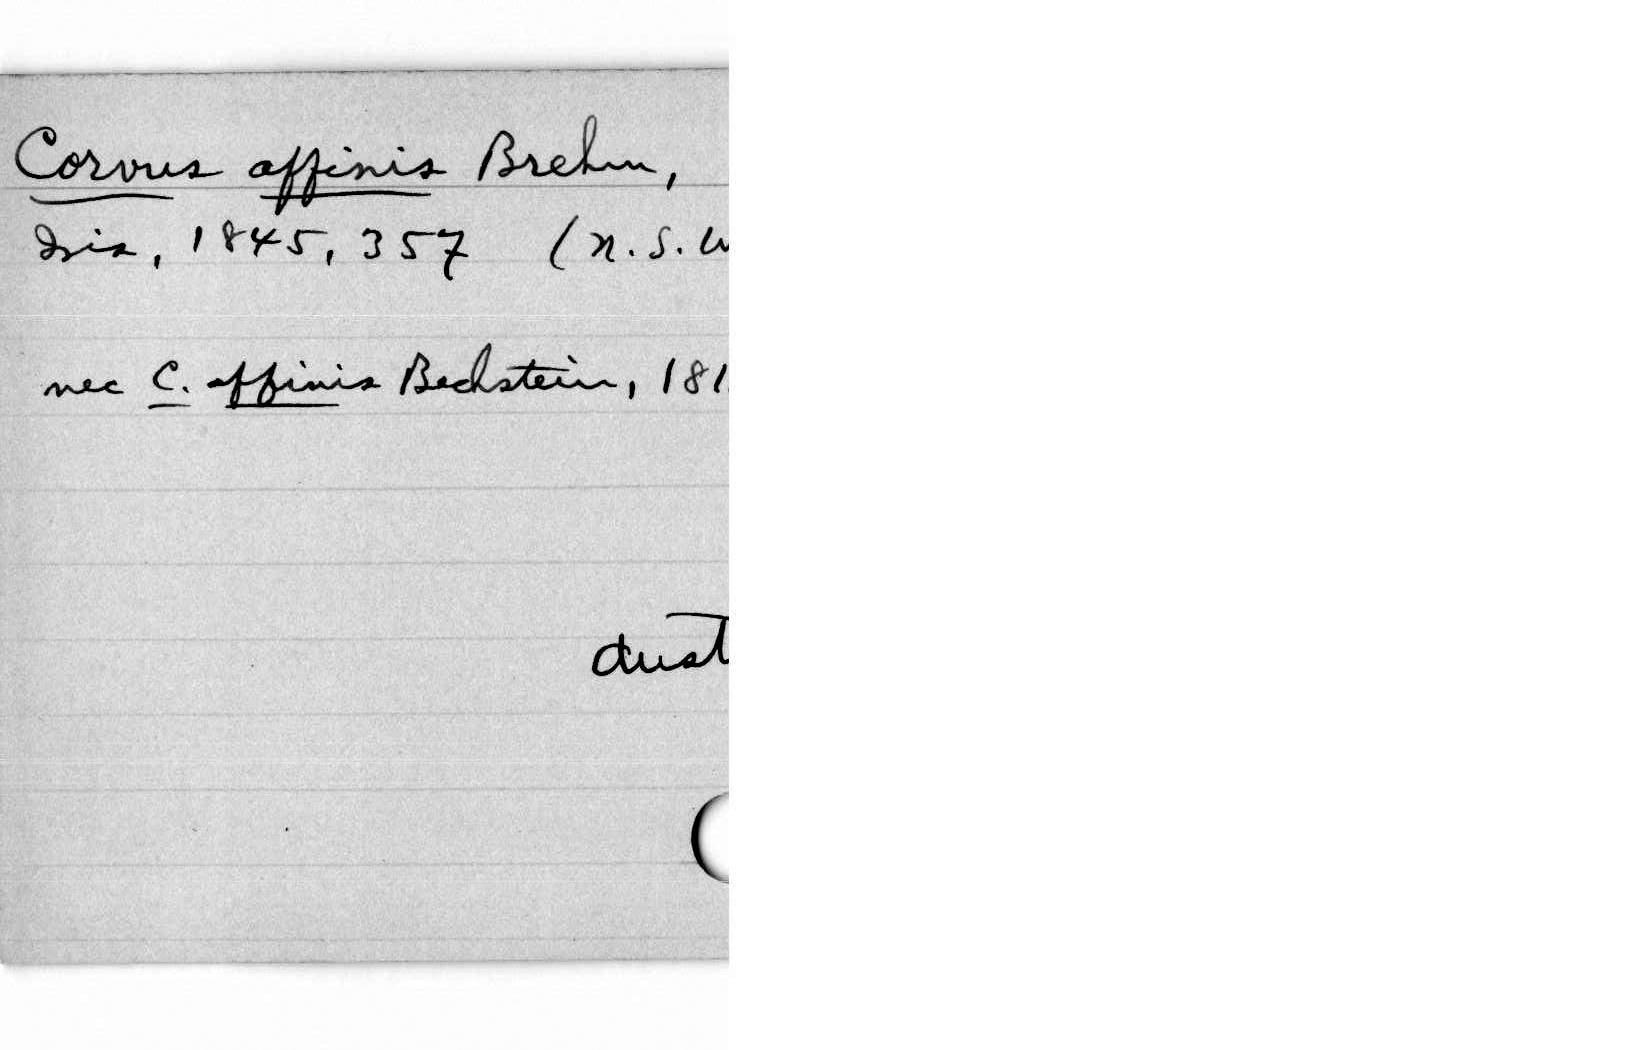 Corvus affinis Brehm,
Isis, 1845, 357 (N.S.W
nec C. affinis Bechstein, 181
aust